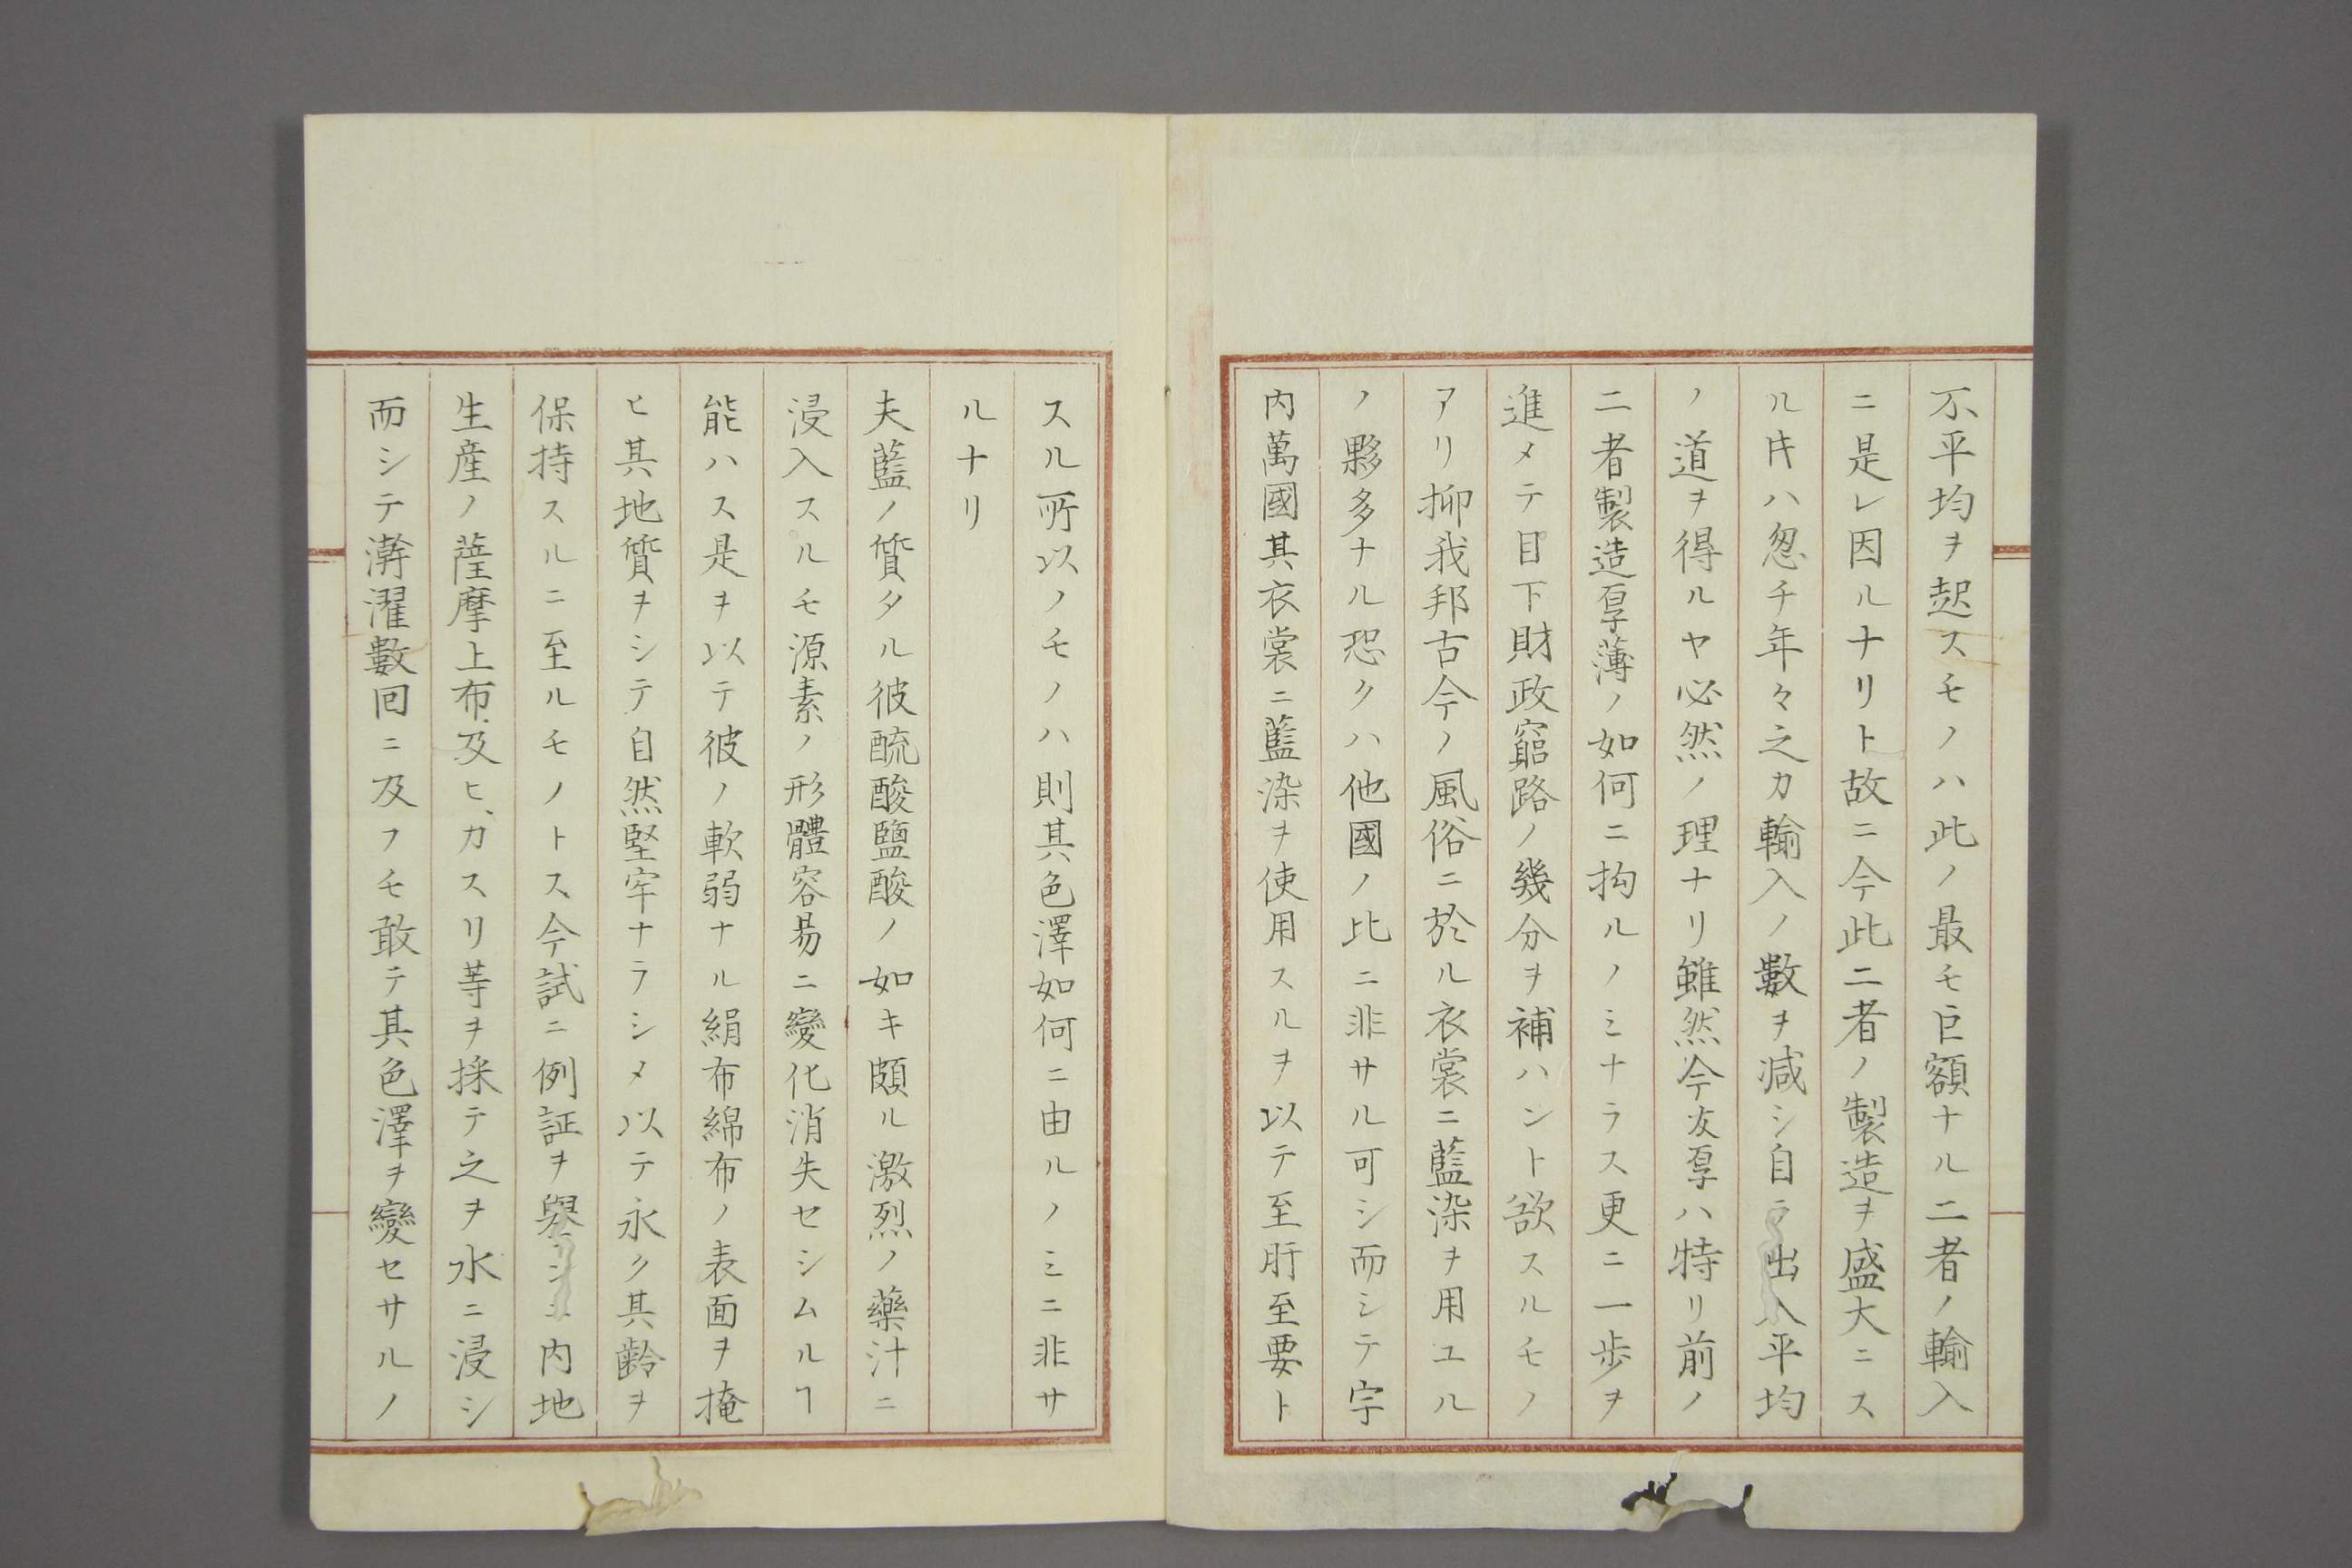 不平均ヲ起スモノハ此ノ最モ巨額ナル二者ノ輸入
ニ是レ因ルナリト故ニ今此二者ノ製造ヲ盛大ニス
ル𪜈ハ忽チ年々之カ輸入ノ數ヲ減シ自ラ出入平均
ノ道ヲ得ルヤ必然ノ理ナリ雖然今友厚ハ特リ前ノ
二者製造厚薄ノ如何ニ拘ルノミナラス更ニ一歩ヲ
進メテ目下財政窮路ノ幾分ヲ補ハント欲スルモノ
アリ抑我邦古今ノ風俗ニ於ル衣裳ニ藍染ヲ用ユル
ノ夥多ナル恐クハ他國ノ比ニ非サル可シ而シテ宇
内萬國其衣裳ニ藍染ヲ使用スルヲ以テ至肝至要ト
スル所以ノモノハ則其色澤如何ニ由ルノミニ非サ
ルナリ
夫藍ノ質タル彼硫酸鹽酸ノ如キ頗ル激烈ノ藥汁ニ
浸入スルモ源素ノ形體容易ニ變化消失セシムルヿ
能ハス是ヲ以テ彼ノ軟弱ナル絹布綿布ノ表面ヲ掩
ヒ其地質ヲシテ自然堅牢ナラシメ以テ永ク其齢ヲ
保持スルニ至ルモノトス今試ニ例証ヲ舉ンニ内地
生産ノ薩摩上布及ヒカスリ等ヲ採テ之ヲ水ニ浸シ
而シテ澣濯數回ニ及フモ敢テ其色澤ヲ變セサルノ